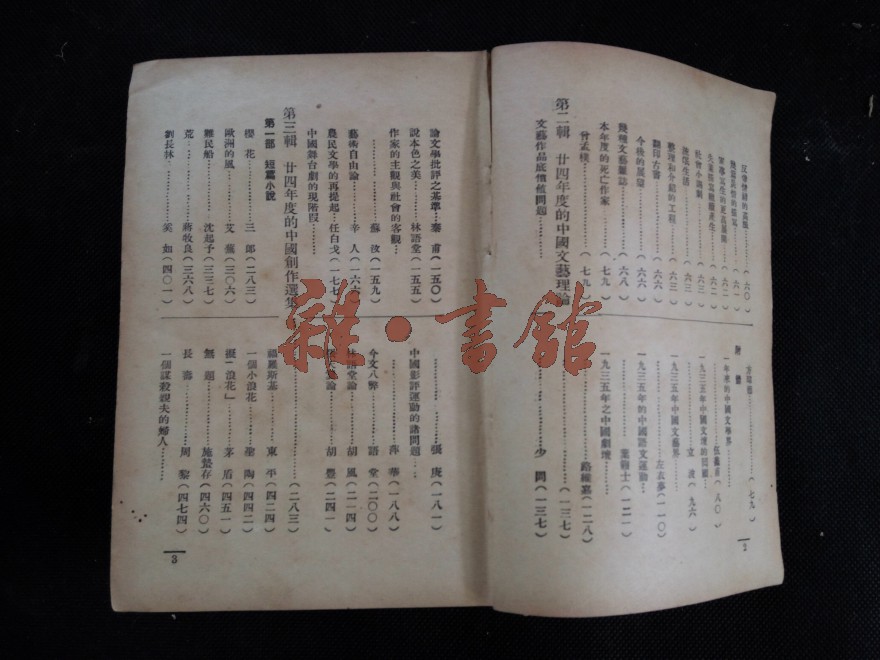 反帝情緒的高漲……(六〇)
……(六一)
軍事文生的更高層開……(六二)
……(六二)
社會小諷刺……(六三)
淺填生活……(六三)
整理和介紹的工程……(六三)
翻印古書……(六六)
今後的展望……(六六)
幾種文藝雜誌……(六八)
本年度的死亡作家……(七九)
曾孟樸……(七九)
方瑋德……(七九)
附體
一年來的中國文學界
……伍蠡甫(八〇)
一九三五年中國文壇的回顧……
……立波(九六)
一九三五年中國文藝界……
……左玄夢(一一〇)
一九三五年的中國語文運動……
……葉籟士(一二一)
一九三五年之中國劇壇……
……路維嘉(一二八)
第二輯 廿四年度的中國文藝理論……(一三七)
文藝作品底情慾問題……少問(一三七)
2
論文學批評之基準…秦甫(一五〇)
說本色之美……林語堂(一五五)
作家的主觀與社會的客觀…
……蘇汶(一五九)
藝術自由論……辛人(一六六)
農民文學的再提起…任白戈(一七七)
中國舞台劇的現階段……
……張庚(一八一)
中國影評運動的諸問題…
……萍華(一八八)
今文八弊……語堂(二〇〇)
林語堂論……胡風(二一四)
……論……胡豐(二四一)
第三輯 廿四年度的中國創作選集……(二八三)
第一部 短篇小說
櫻花……三郎(二八三)
歐洲的風……艾蕪(三〇六)
難民船……沈起予(三三七)
荒……蔣牧良(三六八)
劉長林……芙如(四〇一)
福羅斯基……東平(四二四)
一個小浪花……聖陶(四四二)
擬「浪花」……茅盾(四五一)
無題……施蟄存(四六〇)
長壽……周黎(四七四)
一個謀殺親夫的婦人……
3
雜·書館